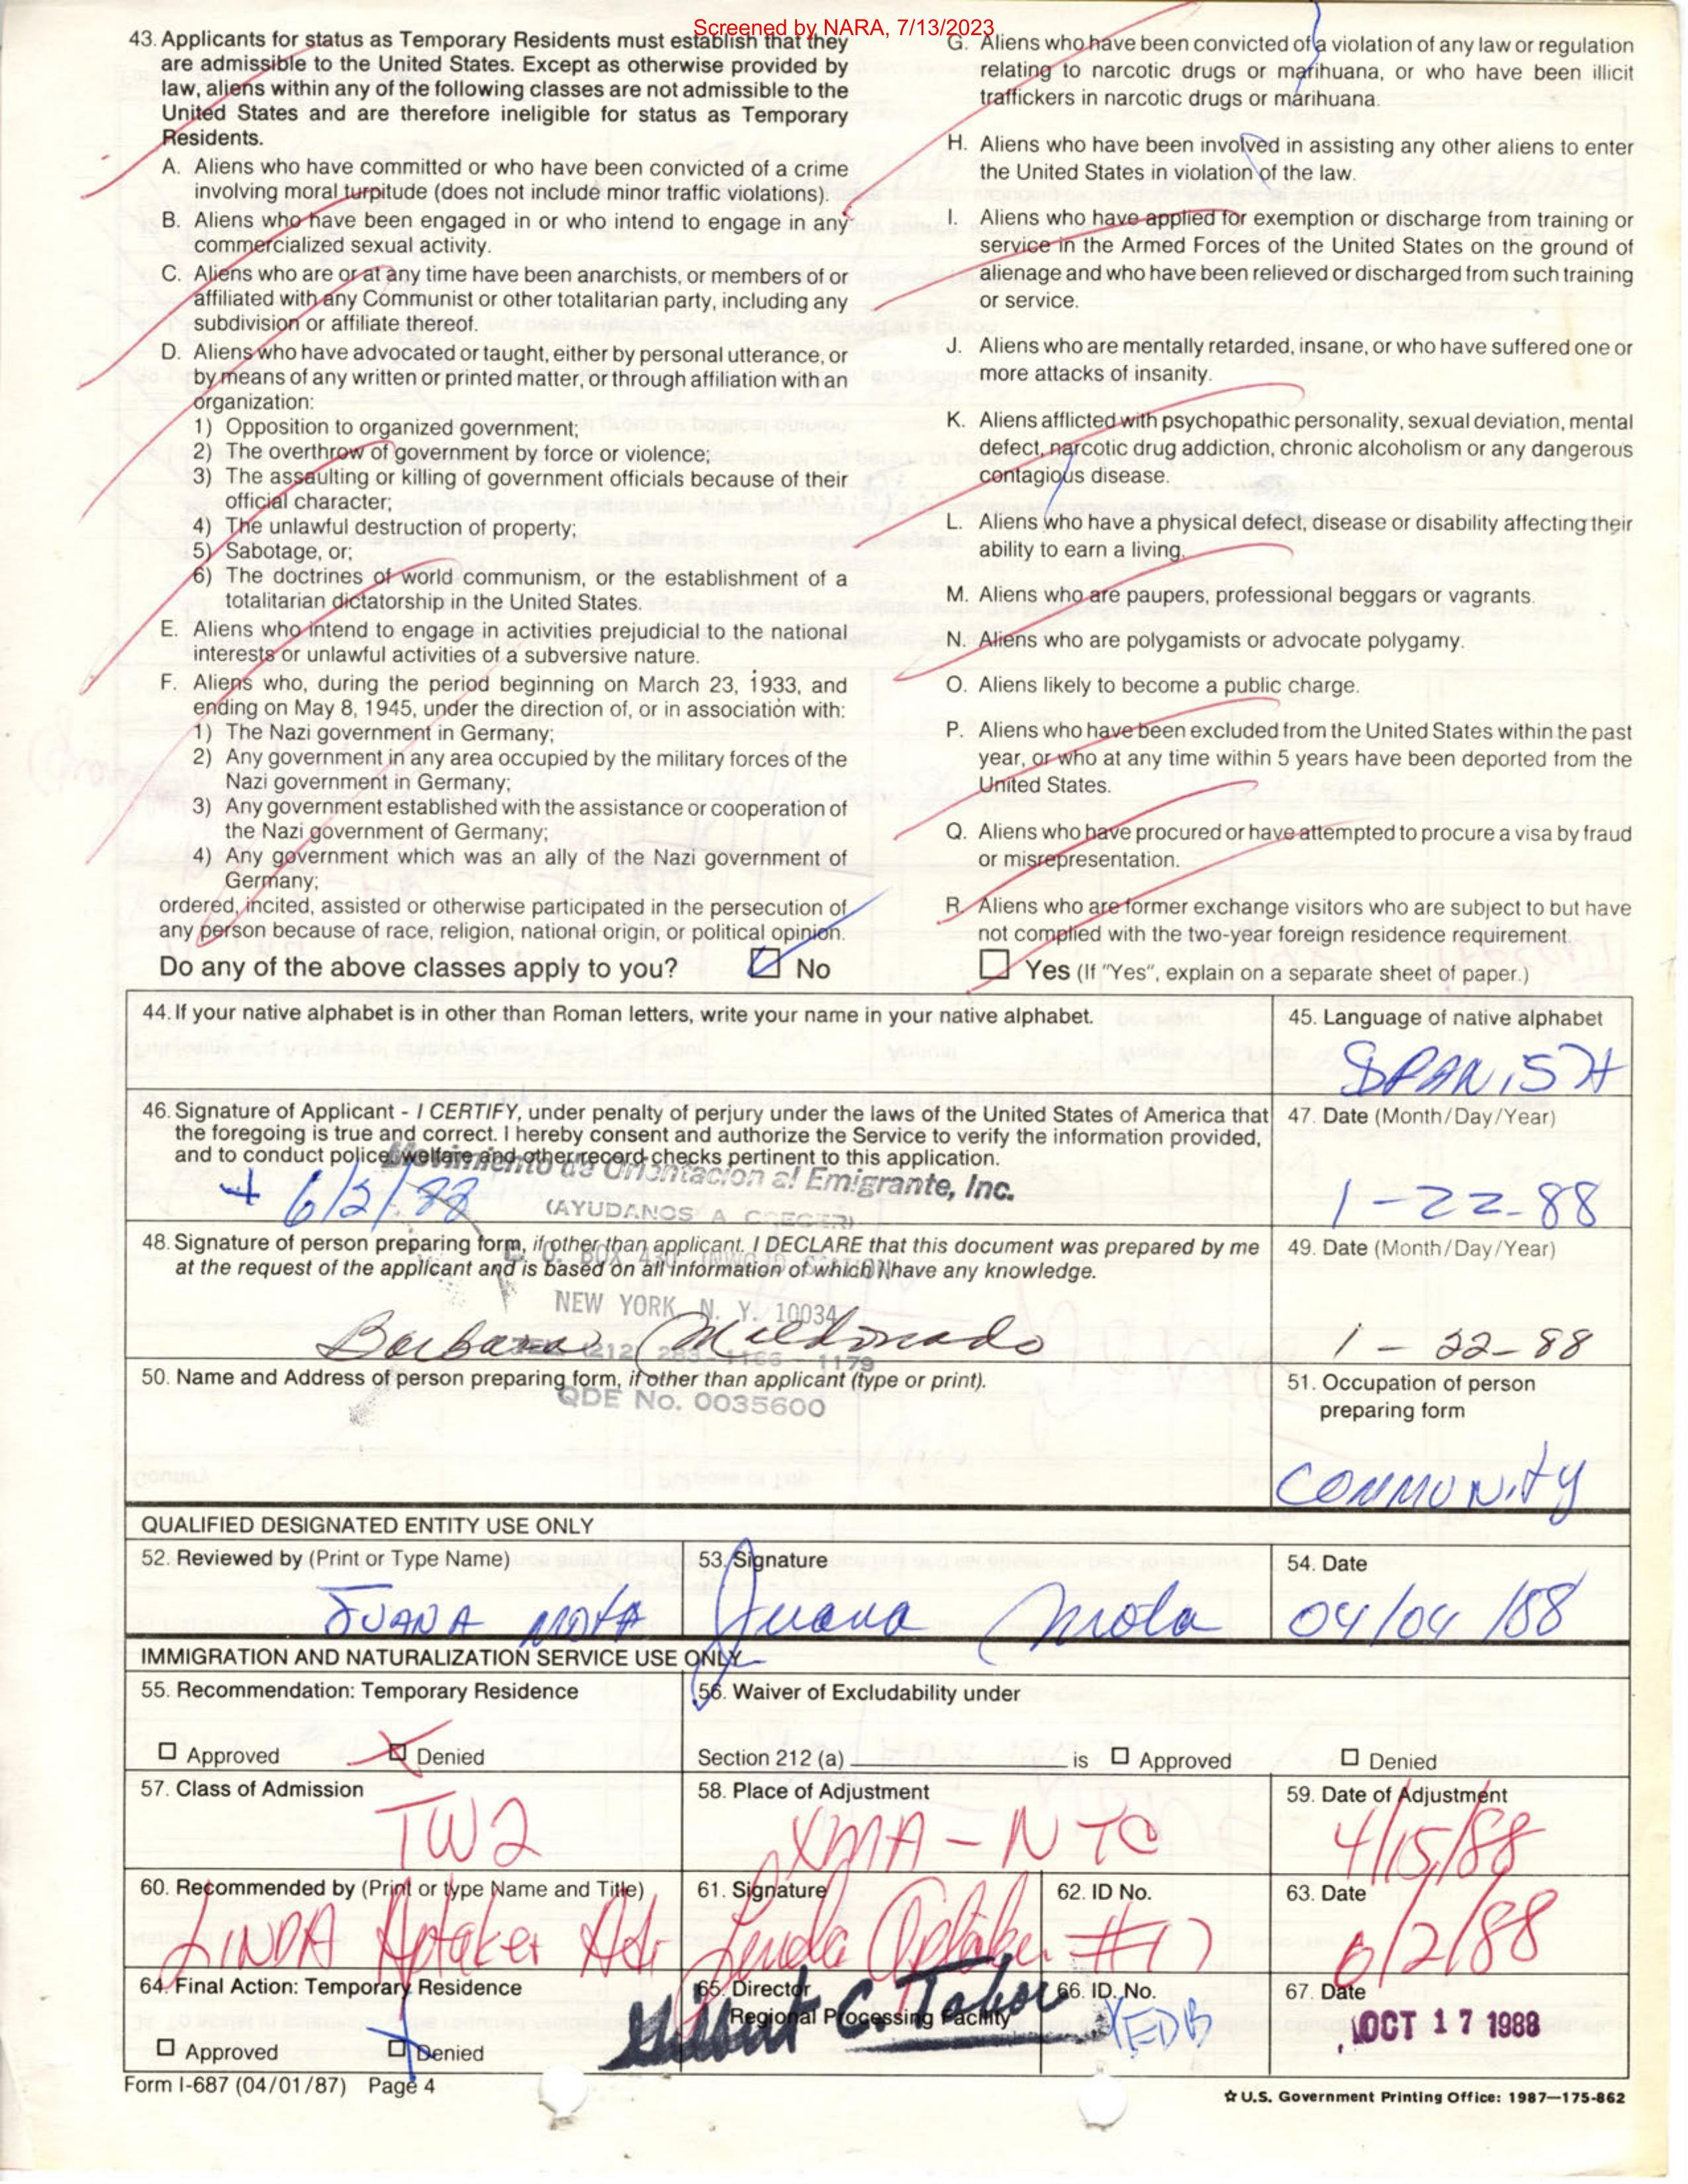 Screened by NARA, 7/13/2023
43. Applicants for status as Temporary Residents must establish that they
are admissible to the United States. Except as otherwise provided by
law, aliens within any of the following classes are not admissible to the
United States and are therefore ineligible for status as Temporary
Residents.
A. Aliens who have committed or who have been convicted of a crime
involving moral turpitude (does not include minor traffic violations).
B. Aliens who have been engaged in or who intend to engage in any
commercialized sexual activity.
C. Aliens who are or at any time have been anarchists, or members of or
affiliated with any Communist or other totalitarian party, including any
subdivision or affiliate thereof.
D. Aliens who have advocated or taught, either by personal utterance, or
by means of any written or printed matter, or through affiliation with an
organization:
1) Opposition to organized government;
2) The overthrow of government by force or violence;
3) The assaulting or killing of government officials because of their
official character;
4) The unlawful destruction of property;
5) Sabotage, or;
6) The doctrines of world communism, or the establishment of a
totalitarian dictatorship in the United States.
E. Aliens who intend to engage in activities prejudicial to the national
interests or unlawful activities of a subversive nature.
F. Aliens who, during the period beginning on March 23, 1933, and
ending on May 8, 1945, under the direction of, or in association with:
1) The Nazi government in Germany;
2) Any government in any area occupied by the military forces of the
Nazi government in Germany;
3) Any government established with the assistance or cooperation of
the Nazi government of Germany;
4) Any government which was an ally of the Nazi government of
Germany;
ordered, incited, assisted or otherwise participated in the persecution of
any person because of race, religion, national origin, or political opinion.
G. Aliens who have been convicted of a violation of any law or regulation
relating to narcotic drugs or marihuana, or who have been illicit
traffickers in narcotic drugs or marihuana.
H. Aliens who have been involved in assisting any other aliens to enter
the United States in violation of the law.
I. Aliens who have applied for exemption or discharge from training or
service in the Armed Forces of the United States on the ground of
alienage and who have been relieved or discharged from such training
or service.
J. Aliens who are mentally retarded, insane, or who have suffered one or
more attacks of insanity.
K. Aliens afflicted with psychopathic personality, sexual deviation, mental
defect, narcotic drug addiction, chronic alcoholism or any dangerous
contagious disease.
L. Aliens who have a physical defect, disease or disability affecting their
ability to earn a living.
M. Aliens who are paupers, professional beggars or vagrants.
N. Aliens who are polygamists or advocate polygamy.
O. Aliens likely to become a public charge.
P. Aliens who have been excluded from the United States within the past
year, or who at any time within 5 years have been deported from the
United States.
Q. Aliens who have procured or have attempted to procure a visa by fraud
or misrepresentation.
R. Aliens who are former exchange visitors who are subject to but have
not complied with the two-year foreign residence requirement.
Do any of the above classes apply to you? No Yes (If "Yes", explain on a separate sheet of paper.)
44. If your native alphabet is in other than Roman letters, write your name in your native alphabet.
45. Language of native alphabet
SPANISH
46. Signature of Applicant - I CERTIFY, under penalty of perjury under the laws of the United States of America that
the foregoing is true and correct. I hereby consent and authorize the Service to verify the information provided,
and to conduct police, welfare and other record checks pertinent to this application.
47. Date (Month/Day/Year)
Movimiento de Orientacion al Emigrante, Inc.
6/2/88
1-22-88
(AYUDANOS A CRECER)
48. Signature of person preparing form, if other than applicant. I DECLARE that this document was prepared by me
at the request of the applicant and is based on all information of which I have any knowledge.
49. Date (Month/Day/Year)
P. O. BOX 430 INWOOD STATION
NEW YORK, N. Y. 10034
Barbara Maldonado
1-22-88
TEL. 212 283-1166 - 1179
50. Name and Address of person preparing form, if other than applicant (type or print).
QDE No. 0035600
51. Occupation of person
preparing form
COMMUNITY
QUALIFIED DESIGNATED ENTITY USE ONLY
52. Reviewed by (Print or Type Name)
53. Signature
54. Date
JUANA MOTA
Juana Mota
04/04/88
IMMIGRATION AND NATURALIZATION SERVICE USE ONLY
55. Recommendation: Temporary Residence
56. Waiver of Excludability under
Approved Denied
Section 212 (a) is Approved Denied
57. Class of Admission
58. Place of Adjustment
59. Date of Adjustment
TW2
XMA-NYC
4/15/88
60. Recommended by (Print or type Name and Title)
61. Signature
62. ID No.
63. Date
LINDA Aptaker Adj
Linda Aptaker
#17
6/2/88
64. Final Action: Temporary Residence
65. Director
Regional Processing Facility
66. ID. No.
67. Date
C. Tabor
XEDB
OCT 17 1988
Approved Denied
Form I-687 (04/01/87) Page 4
☆ U.S. Government Printing Office: 1987—175-862